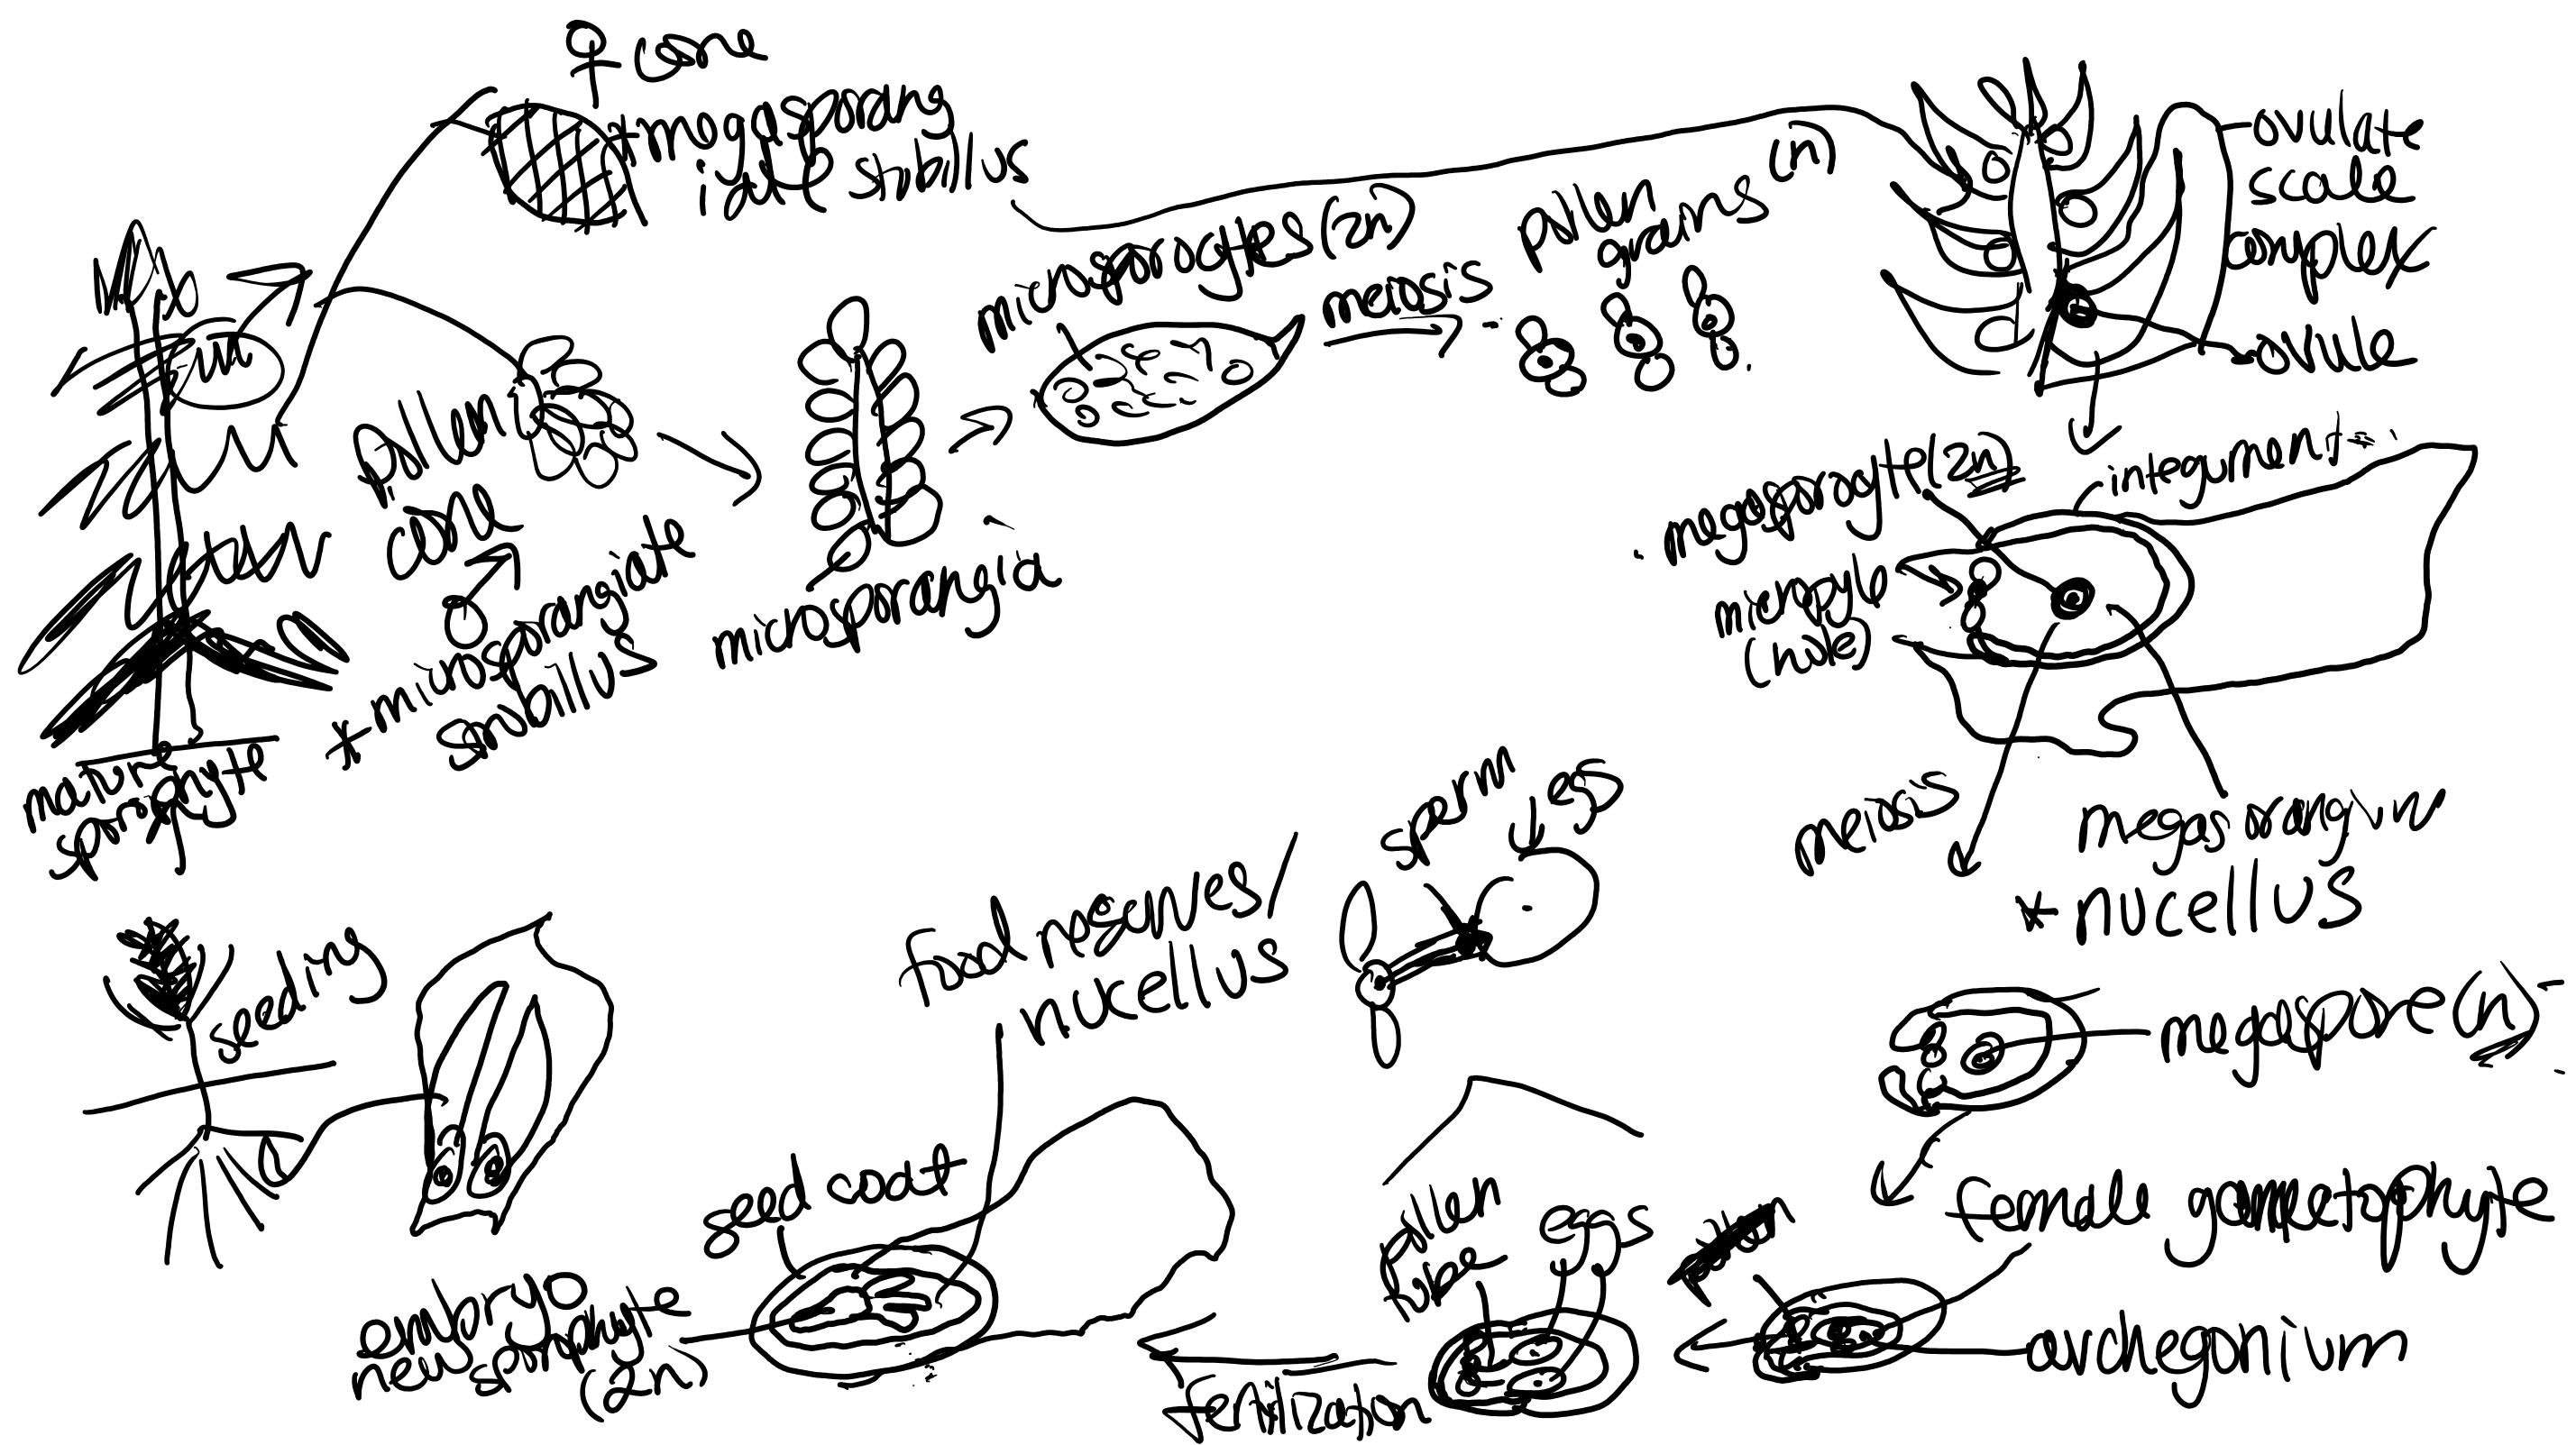 ♀ cone
*megasporang
iate strobillus
microsporocytes (2n)
meiosis
pollen
grains (n)
ovulate
scale
complex
ovule
pollen
cone
♂
*microsporangiate
strobillus
microsporangia
mature
sporophyte
megasporocyte (2n)
integument
micropyle
(hole)
meiosis
megasporangium
*nucellus
sperm
egg
food reserves/
nucellus
seedling
megaspore (n)
female gametophyte
archegonium
pollen
tube
eggs
fertilization
seed coat
embryo
new sporophyte
(2n)